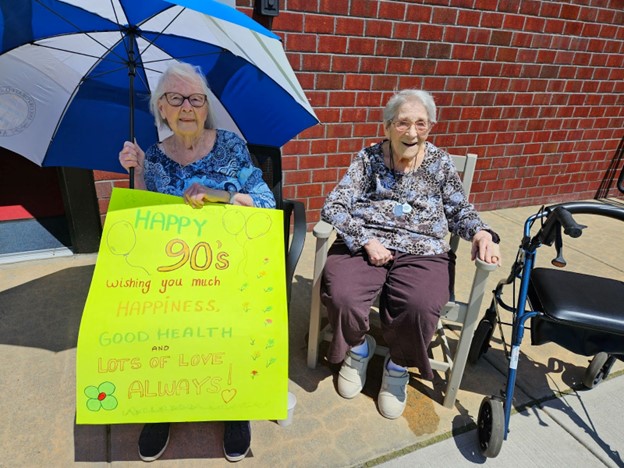 HAPPY
90's
wishing you much
HAPPINESS,
GOOD HEALTH
AND
LOTS OF LOVE
ALWAYS!